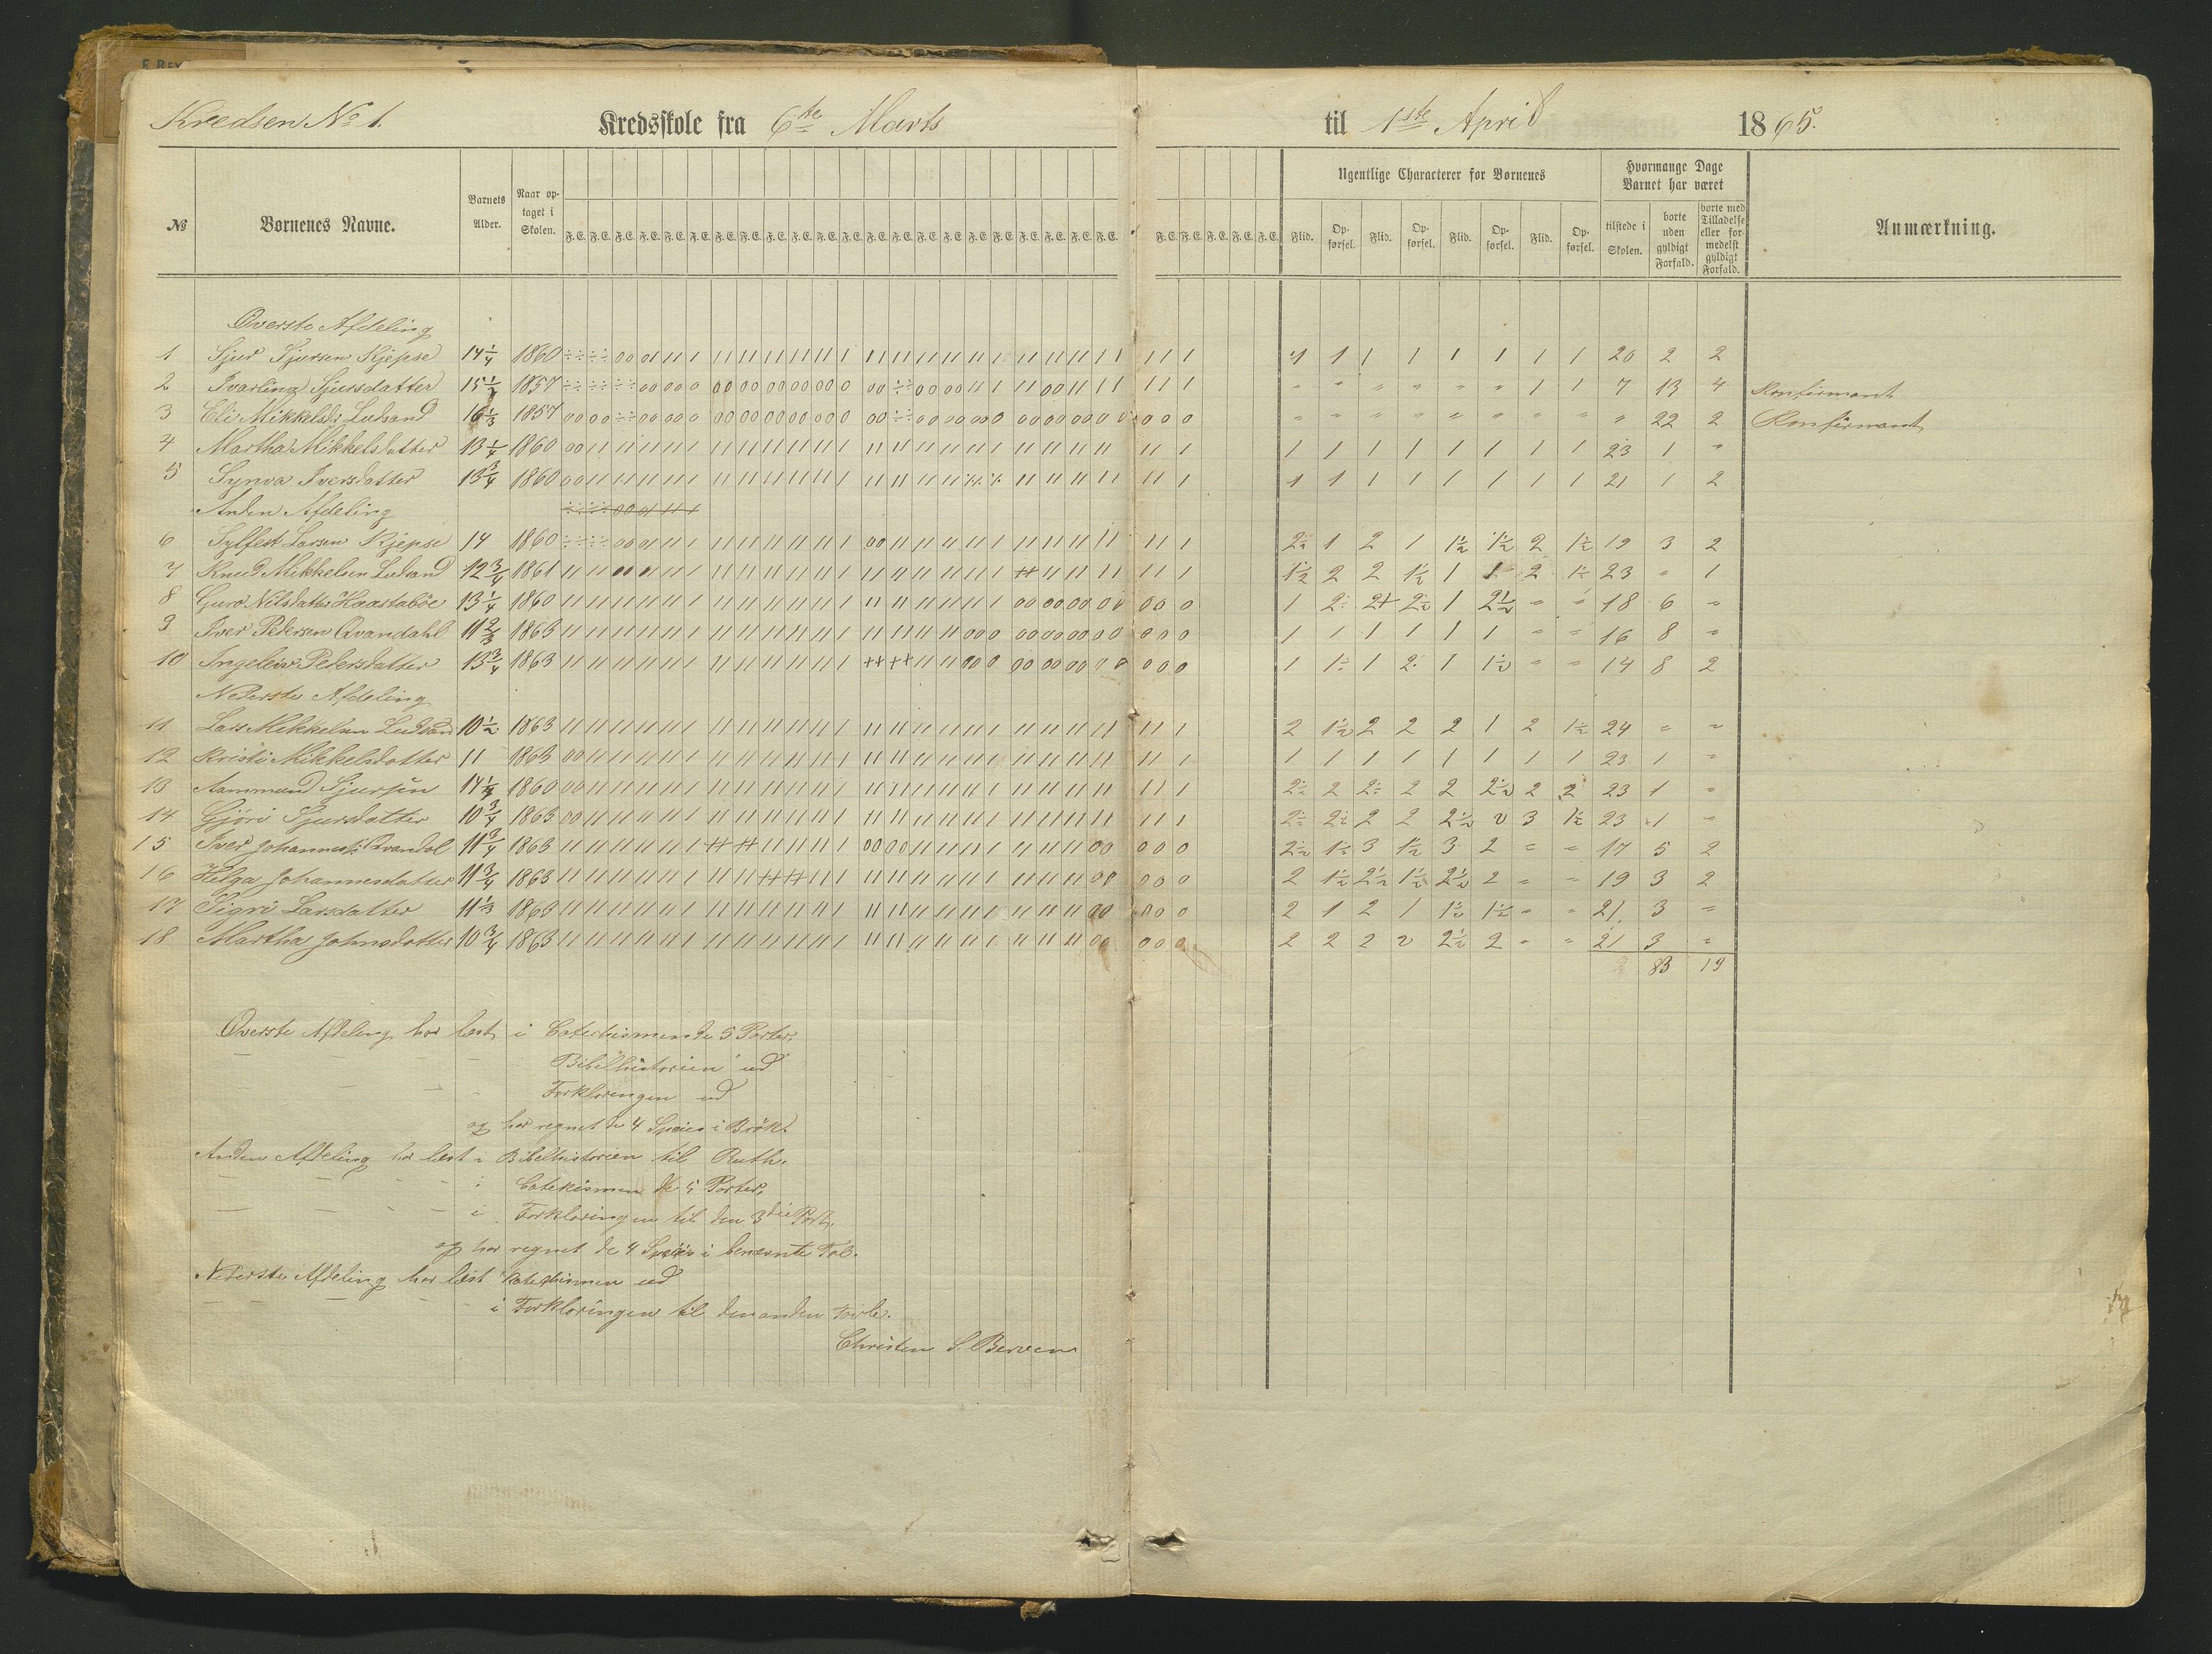 F. BEY
Kredsen No 1.
Kredsskole fra 6te Marts til 1ste April 1865.
№ Børnenes Navne. Barnets Alder. Naar optaget i Skolen. F. E. F. E. F. E. F. E. F. E. F. E. F. E. F. E. F. E. F. E. F. E. F. E. F. E. F. E. F. E. F. E. F. E. F. E. F. E. F. E. F. E. F. E. F. E. F. E. F. E. F. E. F. E.
Ugentlige Characterer for Børnenes
Flid. Opførsel. Flid. Opførsel. Flid. Opførsel. Flid. Opførsel.
Hvormange Dage Barnet har været
tilstede i Skolen. borte uden gyldigt Forfald. borte med Tilladelse eller formedelst gyldigt Forfald.
Anmærkning.
Øverste Afdeling
1 Sjur Sjursen Kjepse 14 1/4 1860 1 1 1 1 1 1 1 1 20 2 2
2 Ivarling Sjursdatter 15 1/2 1857 " " " " " " 1 1 7 13 4 Konfirmant
3 Eli Mikkelsd: Ludsand 16 1/3 1857 " " " " " " " " " 22 2 Konfirmant
4 Martha Mikkelsdatter 13 1/4 1860 1 1 1 1 1 1 1 1 23 1 "
5 Synva Iversdatter 13 3/4 1860 1 1 1 1 1 1 1 1 21 1 2
Anden Afdeling
6 Sylfest Larsen Kjepse 14 1860 2 1/2 1 2 1 1 1/2 1 1/2 2 1 1/2 19 3 2
7 Knud Mikkelsen Ludsand 12 3/4 1861 1 1/2 2 2 1 1/2 1 1 2 1 1/2 23 " 1
8 Guro Nilsdatter Haastabøe 13 1/4 1860 1 2 2+ 2 1/2 1 2 1/2 " " 18 6 "
9 Iver Pedersen Qvandahl 11 2/3 1863 1 1 1 1 1 1 " " 16 8 "
10 Ingeleiv Pedersdatter 13 3/4 1863 1 1 1/2 1 2 1 1 1/2 " " 14 8 2
Nederste Afdeling
11 Lars Mikkelsen Ludsand 10 1/2 1863 2 1 1/2 2 2 2 1 2 1 1/2 24 " "
12 Kristi Mikkelsdatter 11 1863 1 1 1 1 1 1 1 1 23 1 "
13 Aammund Sjursen 14 1/4 1860 2 1/2 2 2 1/2 2 2 2 1/2 2 2 23 1 "
14 Gjøri Sjursdatter 10 3/4 1863 2 1/2 2 1/2 2 2 2 1/2 2 3 1 1/2 23 1 "
15 Iver Johannes: Qvandal 11 3/4 1863 2 1/2 1 1/2 3 1 1/2 3 2 " " 17 5 2
16 Helga Johannesdatter 11 3/4 1863 2 1 1/2 2 1/2 1 1/2 2 1/2 2 " " 19 3 2
17 Sigri Larsdatter 11 1/3 1863 2 1 2 1 1 1/2 1 1/2 " " 21 3 "
18 Martha Johnsdatter 10 3/4 1863 2 2 2 2 2 1/2 2 " " 21 3 "
83 19
Øverste Afdeling har læst i Catechismen de 5 Parter.
Bibelhistorien ud
Forklaringen ud
og har regnet de 4 Species i Brøk.
Anden Afdeling har læst i Bibelhistorien til Ruth.
i Catekismen de 5 Parter,
i Forklaringen til den 3die Part.
og har regnet de 4 Species i benævnte Tal.
Nederste Afdeling har læst Katechismen ud
i Forklaringen til den anden Part.
Christen S. Berven